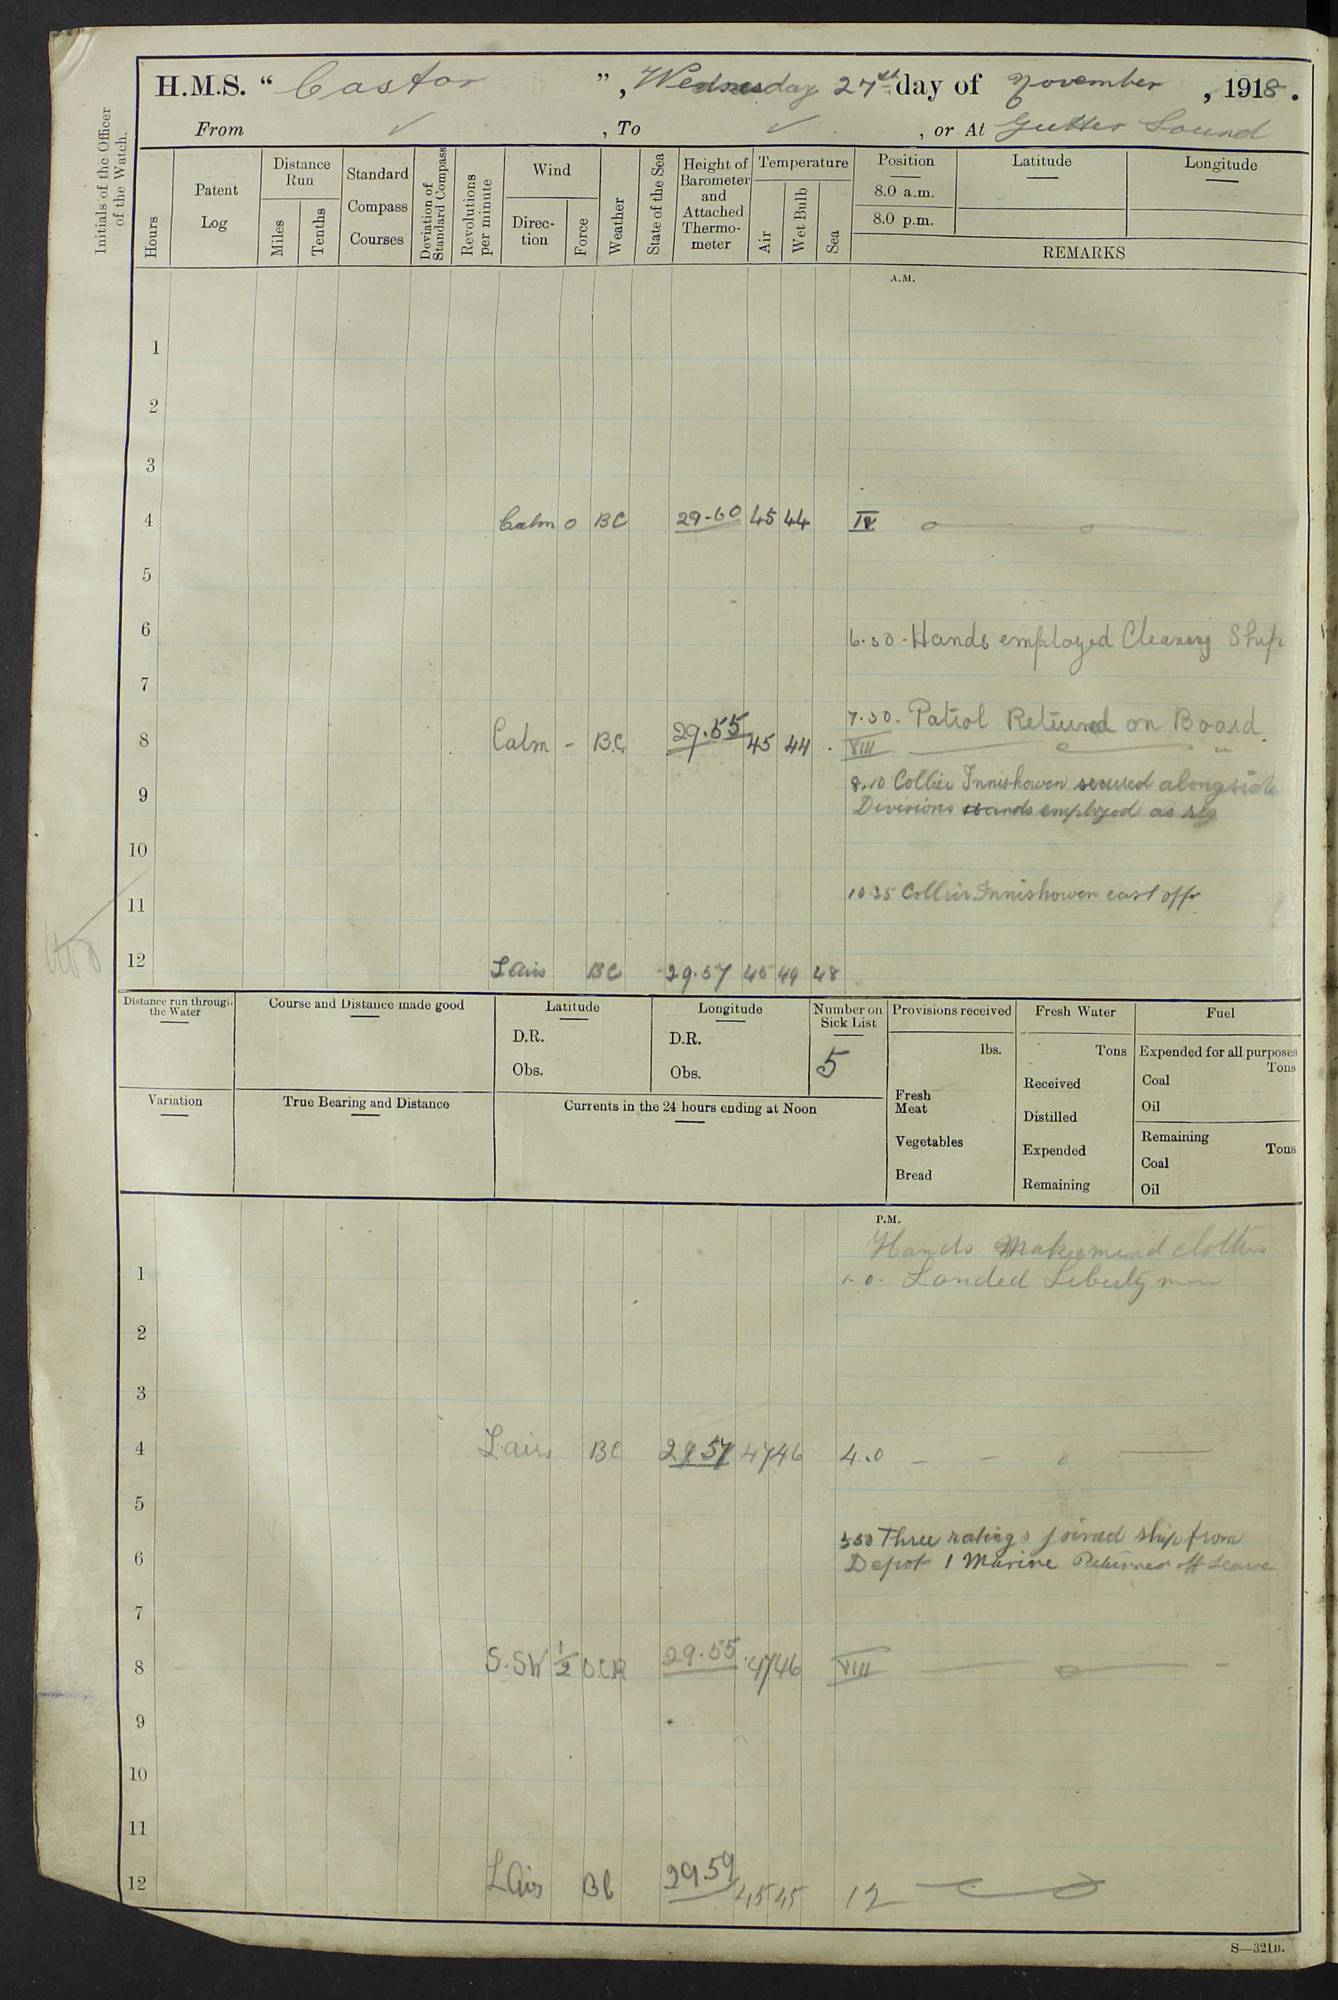 H.M.S. “ Castor ”, Wednesday 27th day of November, 1918.
From ✓, To ✓, or At Gutter Sound
Initials of the Officer of the Watch.
Hours
Patent Log
Distance Run
Miles
Tenths
Standard Compass Courses
Deviation of Standard Compass
Revolutions per minute
Wind
Direction
Force
Weather
State of the Sea
Height of Barometer and Attached Thermometer
Temperature
Air
Wet Bulb
Sea
Position
8.0 a.m.
8.0 p.m.
Latitude
Longitude
REMARKS
A.M.
1
2
3
4 Calm 0 BC 29.60 45 44 IV
5
6 6.30. Hands employed Cleaning Ship
7
7.30. Patrol Returned on Board.
8 Calm - B.C. 29.55 45 44 VIII
8.10 Collier Innishowen secured alongside
9 Divisions Hands employed as req
10
10.35 Collier Innishowen cast off
11
12 L Airs BC 29.57 45 44 48
Distance run through the Water
Course and Distance made good
Latitude
D.R.
Obs.
Longitude
D.R.
Obs.
Number on Sick List
5
Provisions received
lbs.
Fresh Meat
Vegetables
Bread
Fresh Water
Tons
Received
Distilled
Expended
Remaining
Fuel
Expended for all purposes
Tons
Coal
Oil
Remaining
Tons
Coal
Oil
Variation
True Bearing and Distance
Currents in the 24 hours ending at Noon
P.M.
Hands Make & mend clothes
1 1.0. Landed Liberty men
2
3
4 L airs BC 29.57 47 46 4.0
5
5.50 Three ratings joined ship from
6 Depot 1 Marine Returned off Leave
7
8 S.SW 1/2 O.C.R 29.55 47 46 VIII
9
10
11
12 L Airs BC 29.59 45 45 12
S—321B.